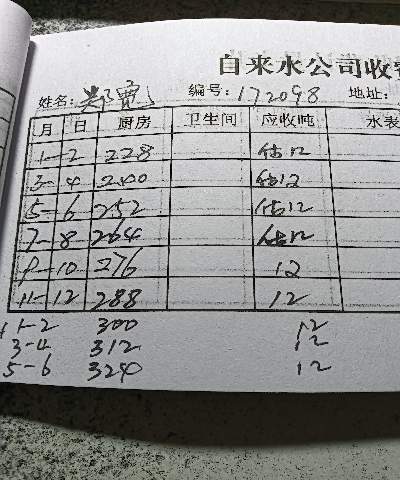 自来水公司收
姓名: 郑宽 编号: 172098 地址:
月 日 厨房 卫生间 应收吨 水表
1-2 228 估12
3-4 240 估12
5-6 252 估12
7-8 264 估12
9-10 276 12
11-12 288 12
1-2 300 12
3-4 312 12
5-6 324 12